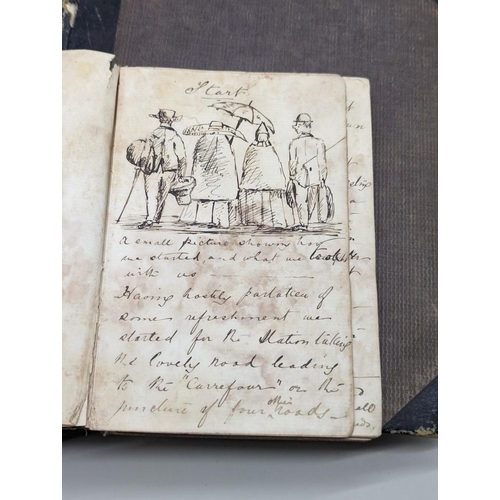 Start
a small picture showing how
we started, and what we took
with us
Having hastily partaken of
some refreshment we
started for the Station taking
the lovely road leading
to the "Carrefour" or the
juncture of four other roads